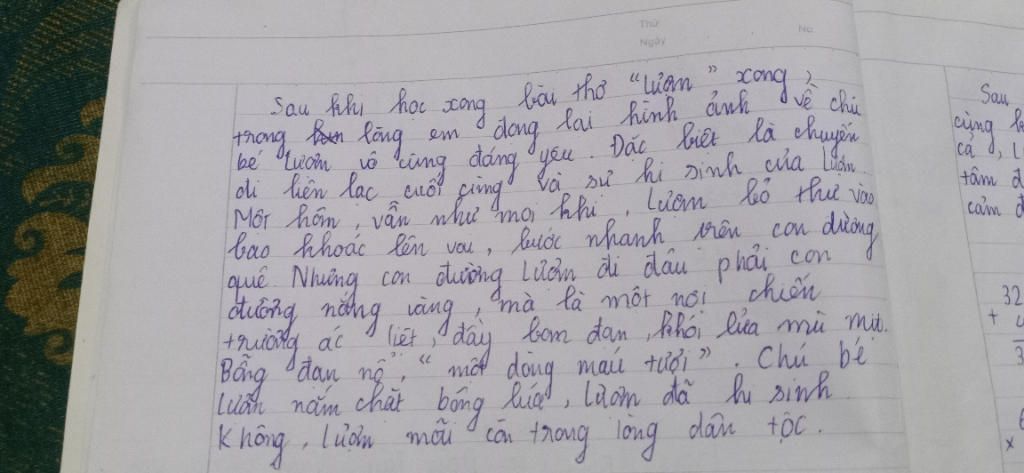 Thứ
No
Ngày
Sau khi học xong bài thơ "Lượm" xong,
trong lòng em đọng lại hình ảnh về chú
bé Lượm vô cùng đáng yêu. Đặc biệt là chuyến
đi liên lạc cuối cùng và sự hi sinh của Lượm.
Một hôm, vẫn như mọi khi, Lượm bỏ thư vào
bao khoác lên vai, bước nhanh trên con đường
quê. Nhưng con đường Lượm đi đâu phải con
đường nắng vàng, mà là một nơi chiến
trường ác liệt, đầy bom đạn, khói lửa mù mịt.
Bỗng đạn nổ, "một dòng máu tươi". Chú bé
Lượm nắm chặt bông lúa, Lượm đã hi sinh.
Không, Lượm mãi còn trong lòng dân tộc.
Sau
cùng
cả, L
tâm đ
cảm đ
32
+
3
x